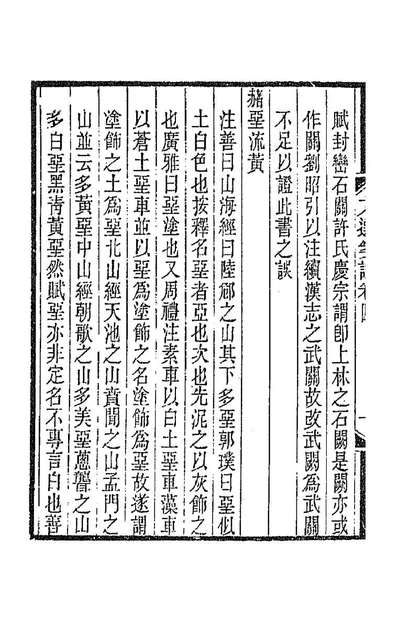 賦封巒石關許氏慶宗謂卽上林之石關是關亦或
作闗劉昭引以注續漢志之武關故改武闗爲武關
不足以證此書之誤
赭堊流黃
注善曰山海經曰陸郚之山其下多堊郭璞曰堊似
土白色也按釋名堊者亞也次也先泥之以灰飾之
也廣雅曰堊塗也又周禮注素車以白土堊車藻車
以蒼土堊車並以堊爲塗飾之名塗飾爲堊故遂謂
塗飾之土爲堊北山經天池之山賁聞之山孟門之
山並云多黃堊中山經朝歌之山多美堊蔥聾之山
多白堊黑靑黃堊然賦堊亦非定名不專言白也善
文選筆記卷四